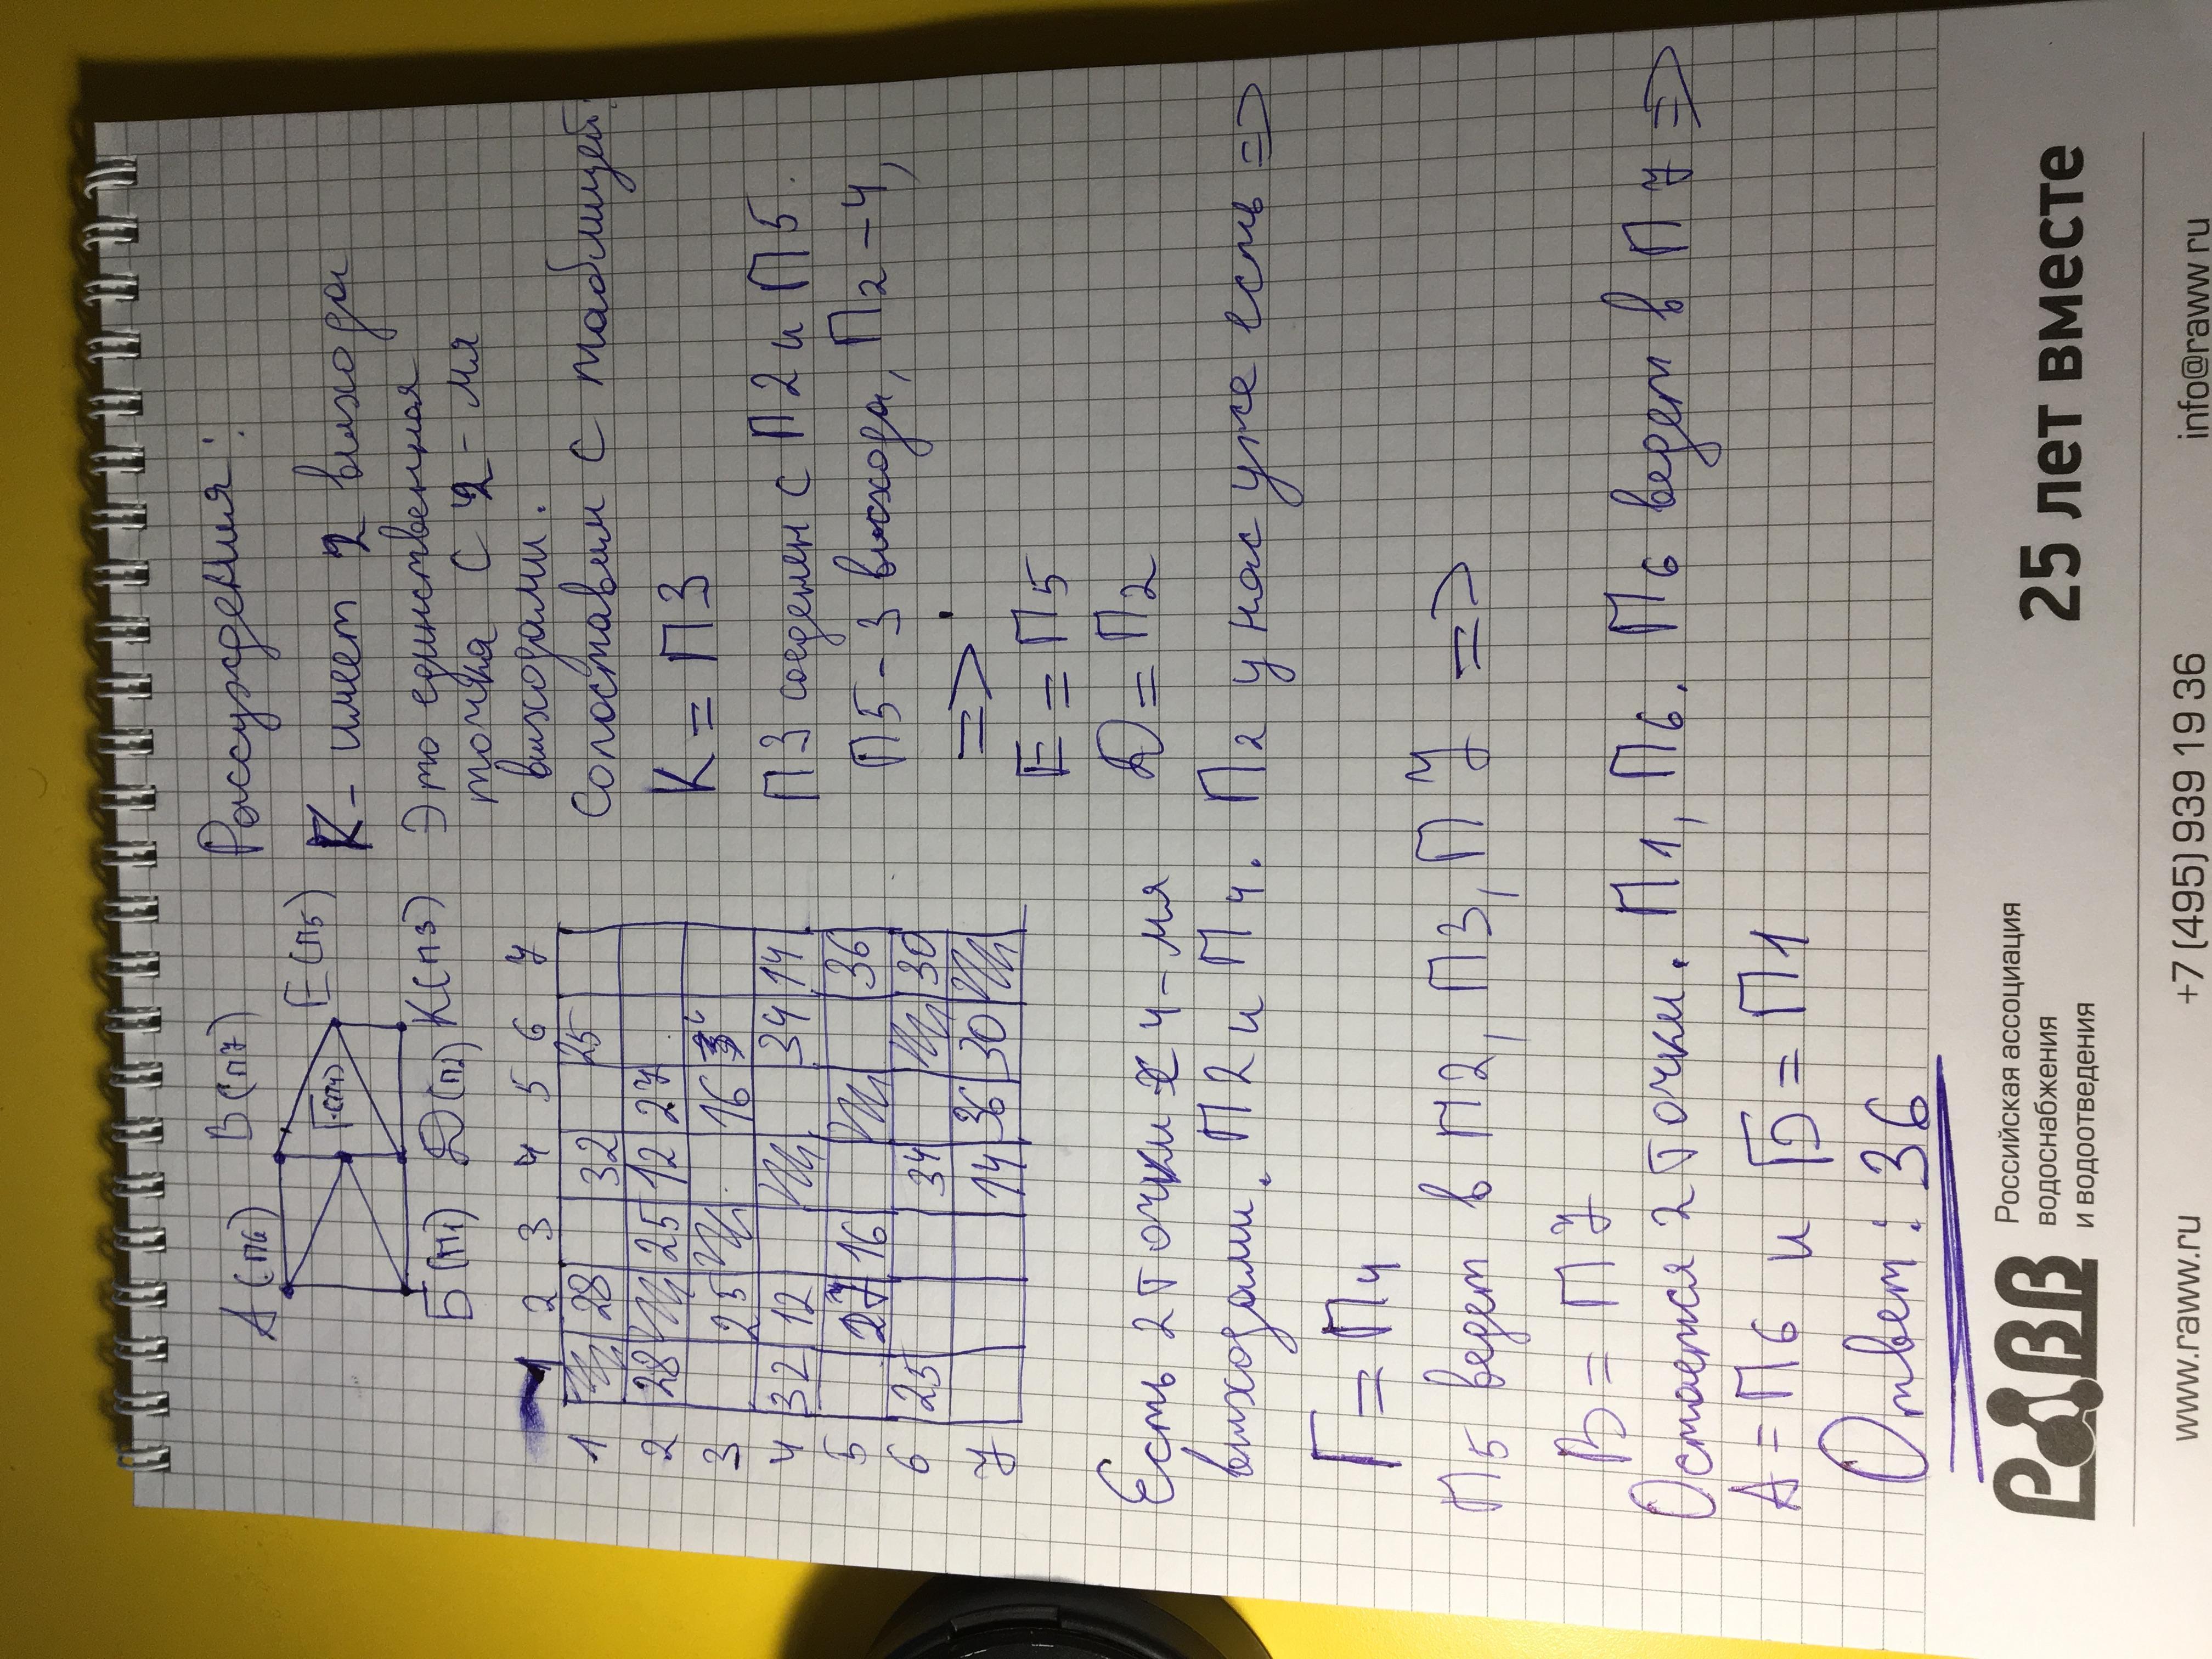 Рассуждения:
А(П6) В(П7) Е(П5)
Г(П4)
Б(П1) Д(П2) К(П3)
К - имеет 2 выхода
Это единственная
точка с 2-мя
выходами.
Сопоставим с таблицей:
К = П3
П3 соеденен с П2 и П5.
П5 - 3 выхода, П2 - 4,
=>
Е = П5
Д = П2
1 2 3 4 5 6 7
1 28 32 25
2 28 25 12 27
3 25 16
4 32 12 34 14
5 27 16 36
6 25 34 30
7 14 36 30
Есть 2 точки с 4-мя
выходами. П2 и П4. П2 у нас уже есть =>
Г = П4
П5 ведет в П2, П3, П7 =>
В = П7
Остается 2 точки. П1, П6. П6 ведет в П7 =>
А = П6 и Б = П1
Ответ: 36
РАВВ
Российская ассоциация
водоснабжения
и водоотведения
25 лет вместе
www.raww.ru +7 (495) 939 19 36 info@raww.ru